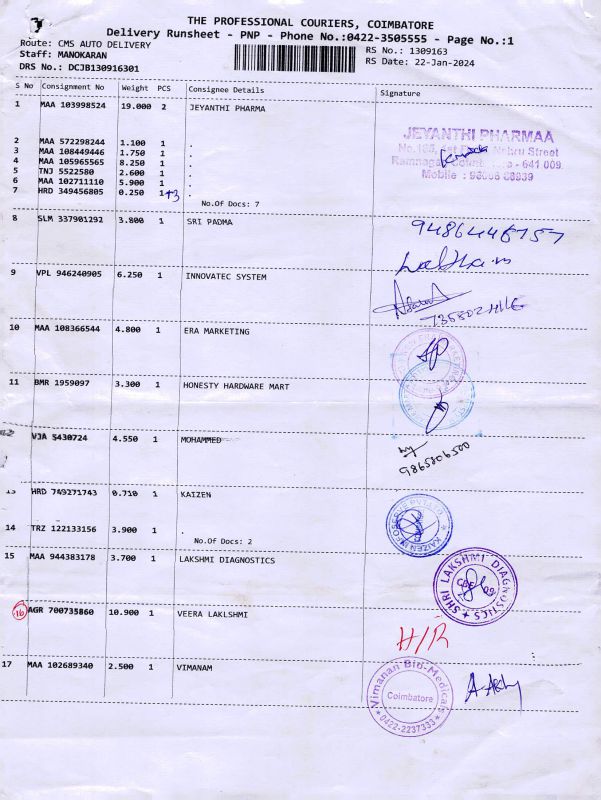 THE PROFESSIONAL COURIERS, COIMBATORE
Delivery Runsheet - PNP - Phone No.:0422-3505555 - Page No.:1
Route: CMS AUTO DELIVERY RS No.: 1309163
Staff: MANOKARAN RS Date: 22-Jan-2024
DRS No.: DCJB130916301
S No Consignment No Weight PCS Consignee Details Signature
1 MAA 103998524 19.000 2 JEYANTHI PHARMA
JEYANTHI PHARMAA
2 MAA 572298244 1.100 1 .
3 MAA 108449446 1.750 1 .
Nehru Street
4 MAA 105965565 8.250 1 .
Ramnagar - 641 009.
5 TNJ 5522580 2.600 1 .
Mobile :
6 MAA 102711110 5.900 1 .
7 HRD 349456805 0.250 1 .
No.Of Docs: 7
8 SLM 337901292 3.800 1 SRI PADMA
9486446757
9 VPL 946240905 6.250 1 INNOVATEC SYSTEM
10 MAA 108366544 4.800 1 ERA MARKETING
11 BMR 1959097 3.300 1 HONESTY HARDWARE MART
VJA 5430724 4.550 1 MOHAMMED
9865806500
13 HRD 749271743 0.710 1 KAIZEN
KAIZEN
14 TRZ 122133156 3.900 1 .
No.Of Docs: 2
15 MAA 944383178 3.700 1 LAKSHMI DIAGNOSTICS
SHRI LAKSHMI DIAGNOSTICS
CBE
16 AGR 700735860 10.900 1 VEERA LAKLSHMI
H/R
17 MAA 102689340 2.500 1 VIMANAM
Vimanan Bio-Medicals
Coimbatore
*0422-2237333*